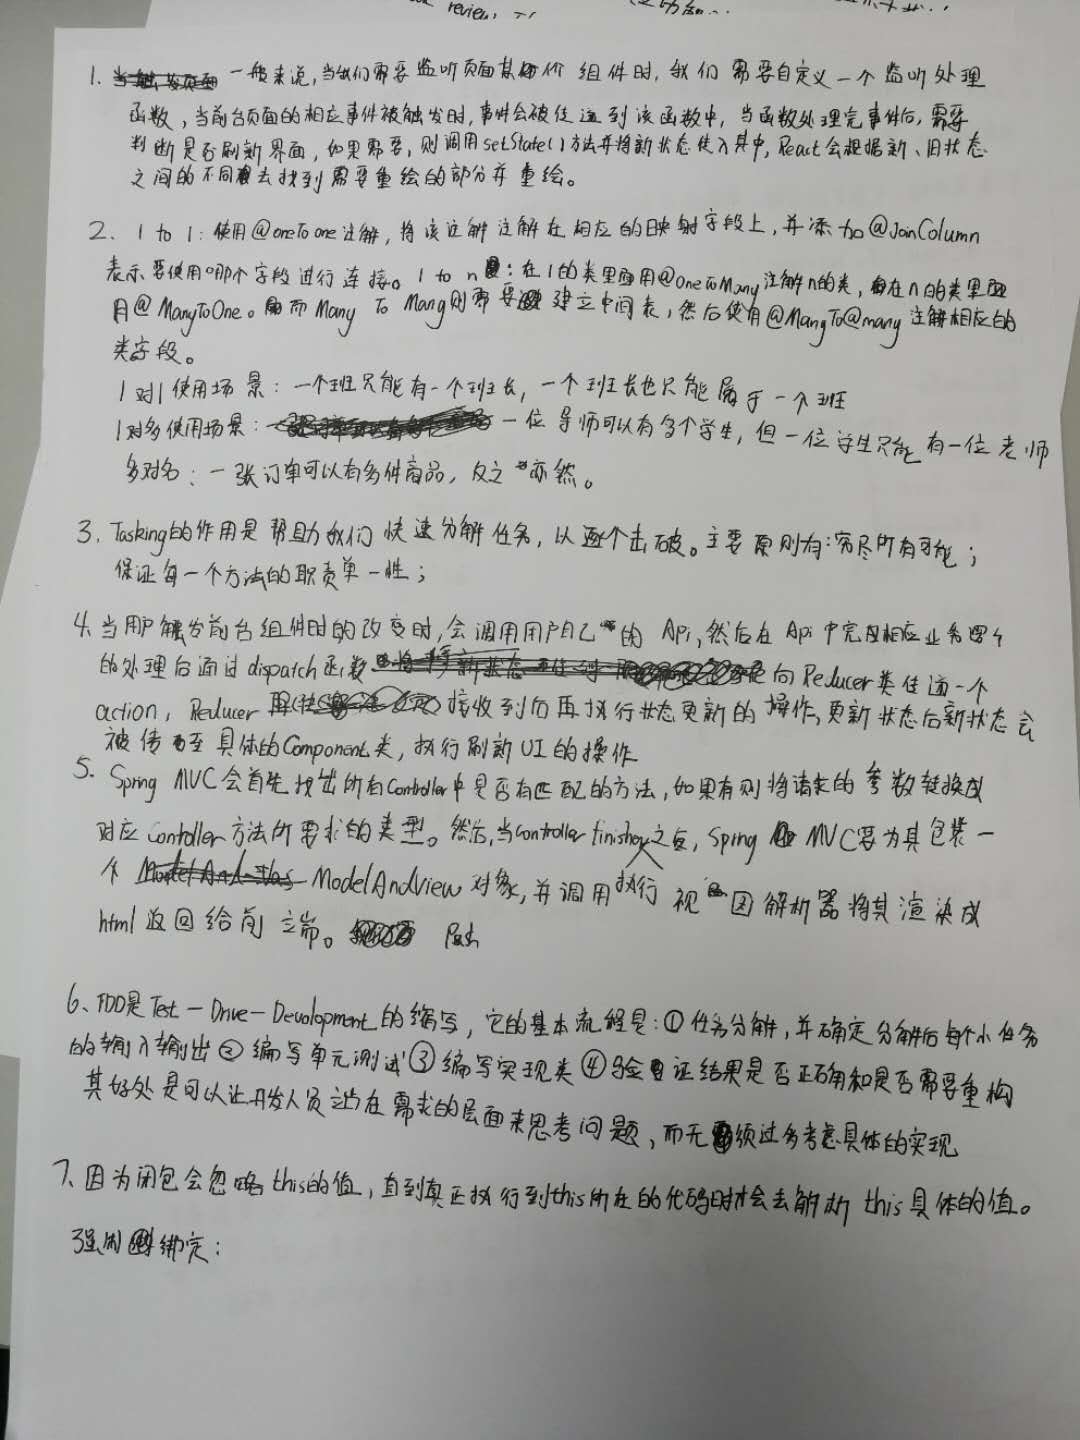 review,
1. 一般来说,当我们需要监听页面某个组件时,我们需要自定义一个监听处理
函数,当前台页面的相应事件被触发时,事件会被传递到该函数中,当函数处理完事件后,需要
判断是否刷新界面,如果需要,则调用setState()方法并将新状态传入其中,React会根据新、旧状态
之间的不同去找到需要重绘的部分并重绘。
2. 1 to 1:使用@oneToone注解,将该注解注解在相应的映射字段上,并添加@JoinColumn
表示要使用哪个字段进行连接。1 to n:在1的类里面用@OneToMany注解n的类,在n的类里面
用@ManyToOne。而Many To Many则需要建立中间表,然后使用@ManyTo@many注解相应的
类字段。
1对1使用场景:一个班只能有一个班长,一个班长也只能属于一个班
1对多使用场景:一位导师可以有多个学生,但一位学生只能有一位老师
多对多:一张订单可以有多件商品,反之亦然。
3. Tasking的作用是帮助我们快速分解任务,以逐个击破。主要原则有:穷尽所有可能;
保证每一个方法的职责单一性;
4. 当用户触发前台组件时的改变时,会调用用户自己的Api,然后在Api中完成相应业务逻辑
的处理后通过dispatch函数向Reducer类传递一个
action,Reducer接收到后再执行状态更新的操作,更新状态后新状态会
被传至具体的Component类,执行刷新UI的操作
5. Spring MVC会首先找出所有Controller中是否有匹配的方法,如果有则将请求的参数转换成
对应Contoller方法所要求的类型。然后,当controller finish之后,Spring MVC要为其包装一
个ModelAndView对象,并调用执行视图解析器将其渲染成
html返回给前端。
6、TDD是Test-Drive-Devolopment的缩写,它的基本流程是:①任务分解,并确定分解后每个小任务
的输入输出②编写单元测试③编写实现类④验证结果是否正确和是否需要重构
其好处是可以让开发人员站在需求的层面来思考问题,而无须过多考虑具体的实现
7、因为闭包会忽略this的值,直到真正执行到this所在的代码时才会去解析this具体的值。
强制绑定: